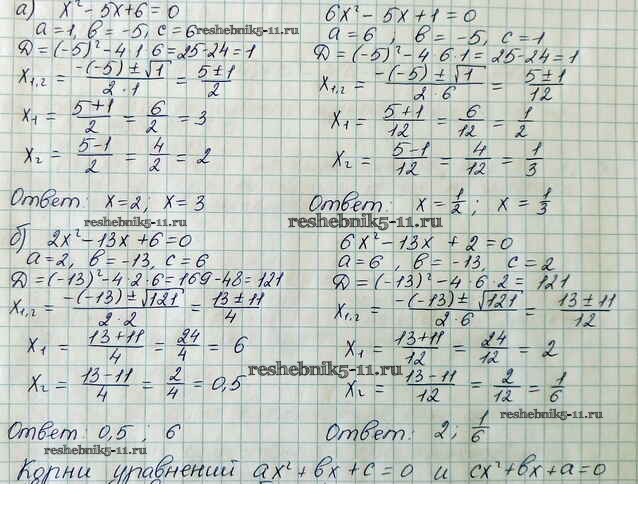 а) x² - 5x + 6 = 0
a = 1, в = -5, c = 6
Д = (-5)² - 4·1·6 = 25-24 = 1
x₁,₂ = (-(-5) ± √1)/(2·1) = (5±1)/2
x₁ = (5+1)/2 = 6/2 = 3
x₂ = (5-1)/2 = 4/2 = 2
Ответ: x=2; x=3
reshebnik5-11.ru
6x² - 5x + 1 = 0
a = 6, в = -5, c = 1
Д = (-5)² - 4·6·1 = 25-24 = 1
x₁,₂ = (-(-5) ± √1)/(2·6) = (5±1)/12
x₁ = (5+1)/12 = 6/12 = 1/2
x₂ = (5-1)/12 = 4/12 = 1/3
Ответ: x = 1/2; x = 1/3
reshebnik5-11.ru
reshebnik5-11.ru
б) 2x² - 13x + 6 = 0
a = 2, в = -13, c = 6
Д = (-13)² - 4·2·6 = 169-48 = 121
x₁,₂ = (-(-13) ± √121)/(2·2) = (13±11)/4
x₁ = (13+11)/4 = 24/4 = 6
x₂ = (13-11)/4 = 2/4 = 0,5
Ответ: 0,5; 6
reshebnik5-11.ru
6x² - 13x + 2 = 0
a = 6, в = -13, c = 2
Д = (-13)² - 4·6·2 = 121
x₁,₂ = (-(-13) ± √121)/(2·6) = (13±11)/12
x₁ = (13+11)/12 = 24/12 = 2
x₂ = (13-11)/12 = 2/12 = 1/6
reshebnik5-11.ru
reshebnik5-11.ru
Ответ: 2; 1/6
Корни уравнений ax² + вx + c = 0 и cx² + вx + a = 0